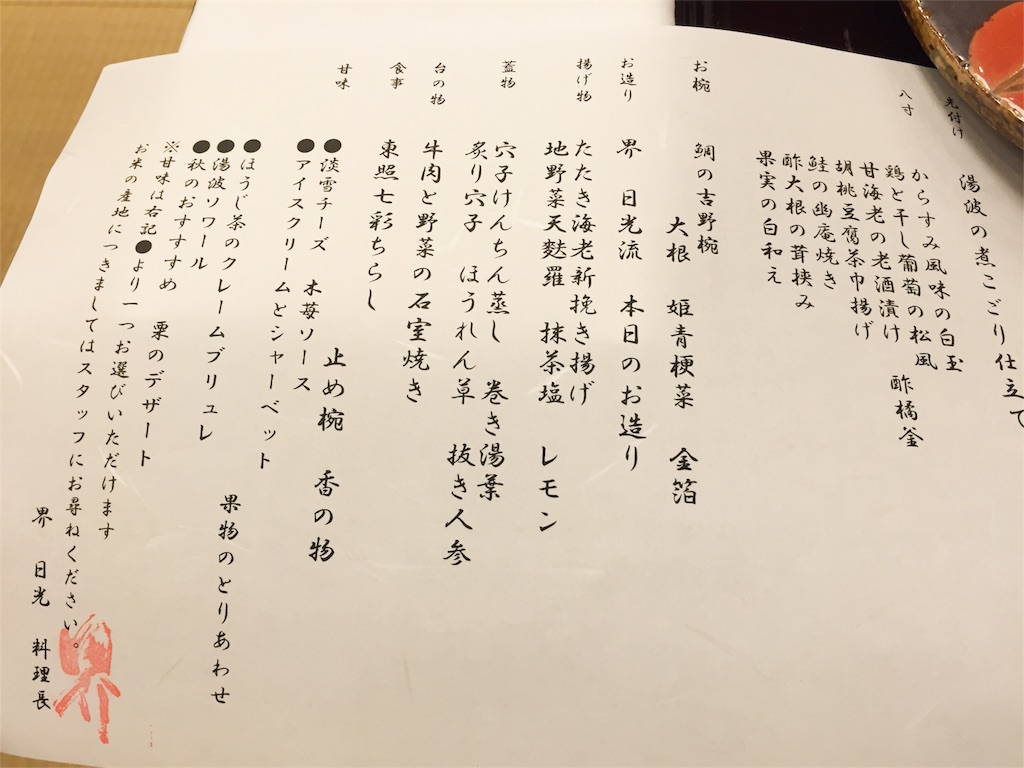 先付け
湯波の煮こごり仕立て
八寸
からすみ風味の白玉
鶏と干し葡萄の松風 酢橘釜
甘海老の老酒漬け
胡桃豆腐茶巾揚げ
鮭の幽庵焼き
酢大根の茸挟み
果実の白和え
お椀 鯛の吉野椀
大根 姫青梗菜 金箔
お造り 界 日光流 本日のお造り
揚げ物 たたき海老新挽き揚げ
地野菜天麩羅 抹茶塩 レモン
蓋物 穴子けんちん蒸し 巻き湯葉
炙り穴子 ほうれん草 抜き人参
台の物 牛肉と野菜の石室焼き
食事 東照七彩ちらし
止め椀 香の物
甘味 ●淡雪チーズ 木苺ソース
●アイスクリームとシャーベット
●ほうじ茶のクレームブリュレ
●湯波ソワール 果物のとりあわせ
●秋のおすすすめ 栗のデザート
※甘味は右記●より一つお選びいただけます
お米の産地につきましてはスタッフにお尋ねください。
界 日光 料理長
界